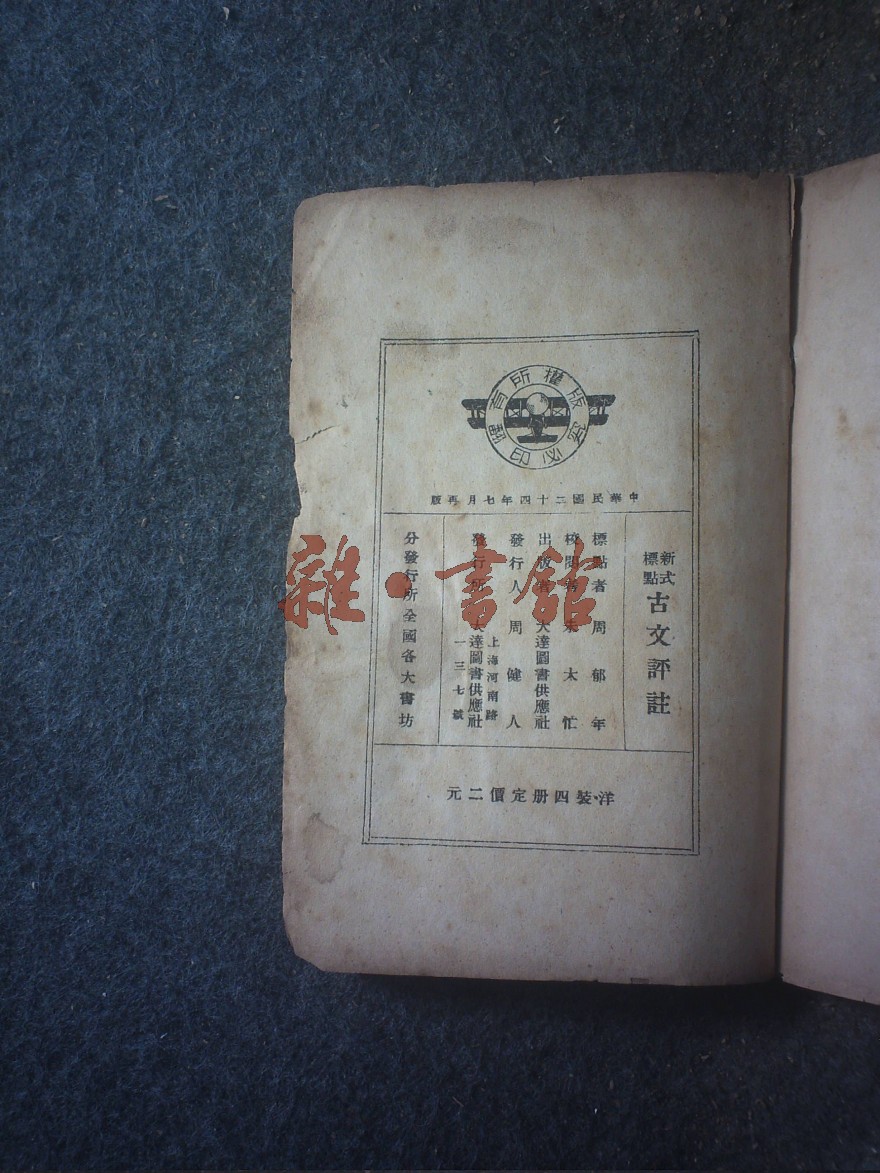 版權所有
翻印必究
中華民國二十四年七月再版
新式標點 古文評註
標點者 周郁年
校閱者 朱太忙
出版者 大達圖書供應社
發行人 周健人
發行所 大達圖書供應社
上海河南路
一三七號
分發行所全國各大書坊
洋裝四册定價二元
雜·書館